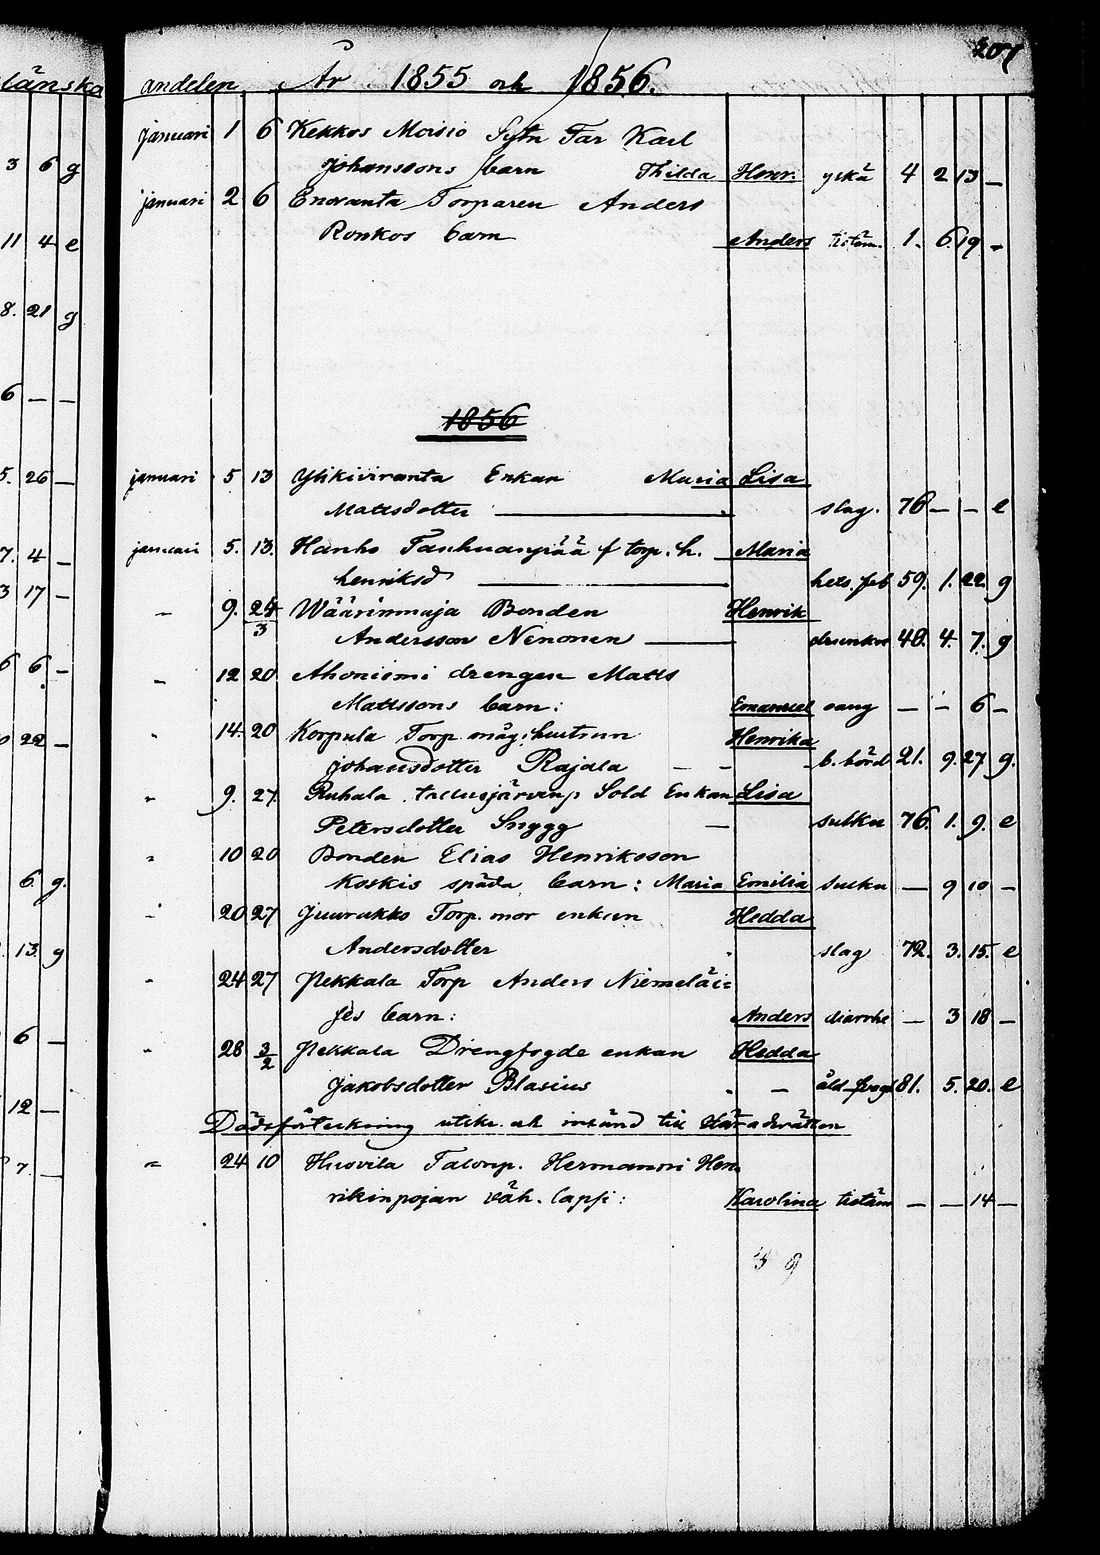 207
länska andelen År 1855 och 1856.
januari 1 6 Kekkos Moisio Sytn Far Karl
3 6 g Johanssons barn Thilda Henr. yskä 4 2 13 —
januari 2 6 Enoranta Torparen Anders
11 4 e Ronkos barn Anders tistäm. 1. 6. 19 -
8. 21 g
6 — —
1856
5. 26 — januari 5 13 Ylikiviranta Enkan Maria Lisa
Mattsdotter slag. 76 — — e
7. 4 — januari 5. 13. Hanho Tanhuanpää f torp. h. Maria
3 17 — henriksd hets. feb 59. 1. 22. g
" 9. 24/3 Wäärinmaja Bonden Henrik
Andersson Nenonen drunkn 48. 4. 7. g
6 6 — " 12 20 Ahoniemi drengen Matts
Mattssons barn: Emanuel oang — — 6 —
22 — " 14. 20 Korpula Torp. måg. hustrun Henrika
Johansdotter Rajala — — b. börd 21. 9. 27 g.
" 9. 27. Ruhala Sold Enkan Lisa
Petersdotter Snygg — sutku 76. 1. 9. e
" 10 20 Bonden Elias Henriksson
6. g. Koskis späda barn: Maria Emilia sutku — 9 10 —
" 20 27 Juurakko Torp. mor enkan Hedda
13. g Andersdotter slag 72. 3. 15. e
" 24 27 Pekkala Torp Anders Niemeläi=
6 — jes barn: Anders diarrhe — 3 18 —
" 28 3/2 Pekkala Drengfogde enkan Hedda
12 — Jakobsdotter Blasius " — åld. 81. 5. 20. e
Dödsförteckning utskr. och insänd till Häradsrätten
7. — " 24 10 Huovila Talonp. Hermanni Hen
rikinpojan väh. lapsi: Karolina tistäm — — 14 —